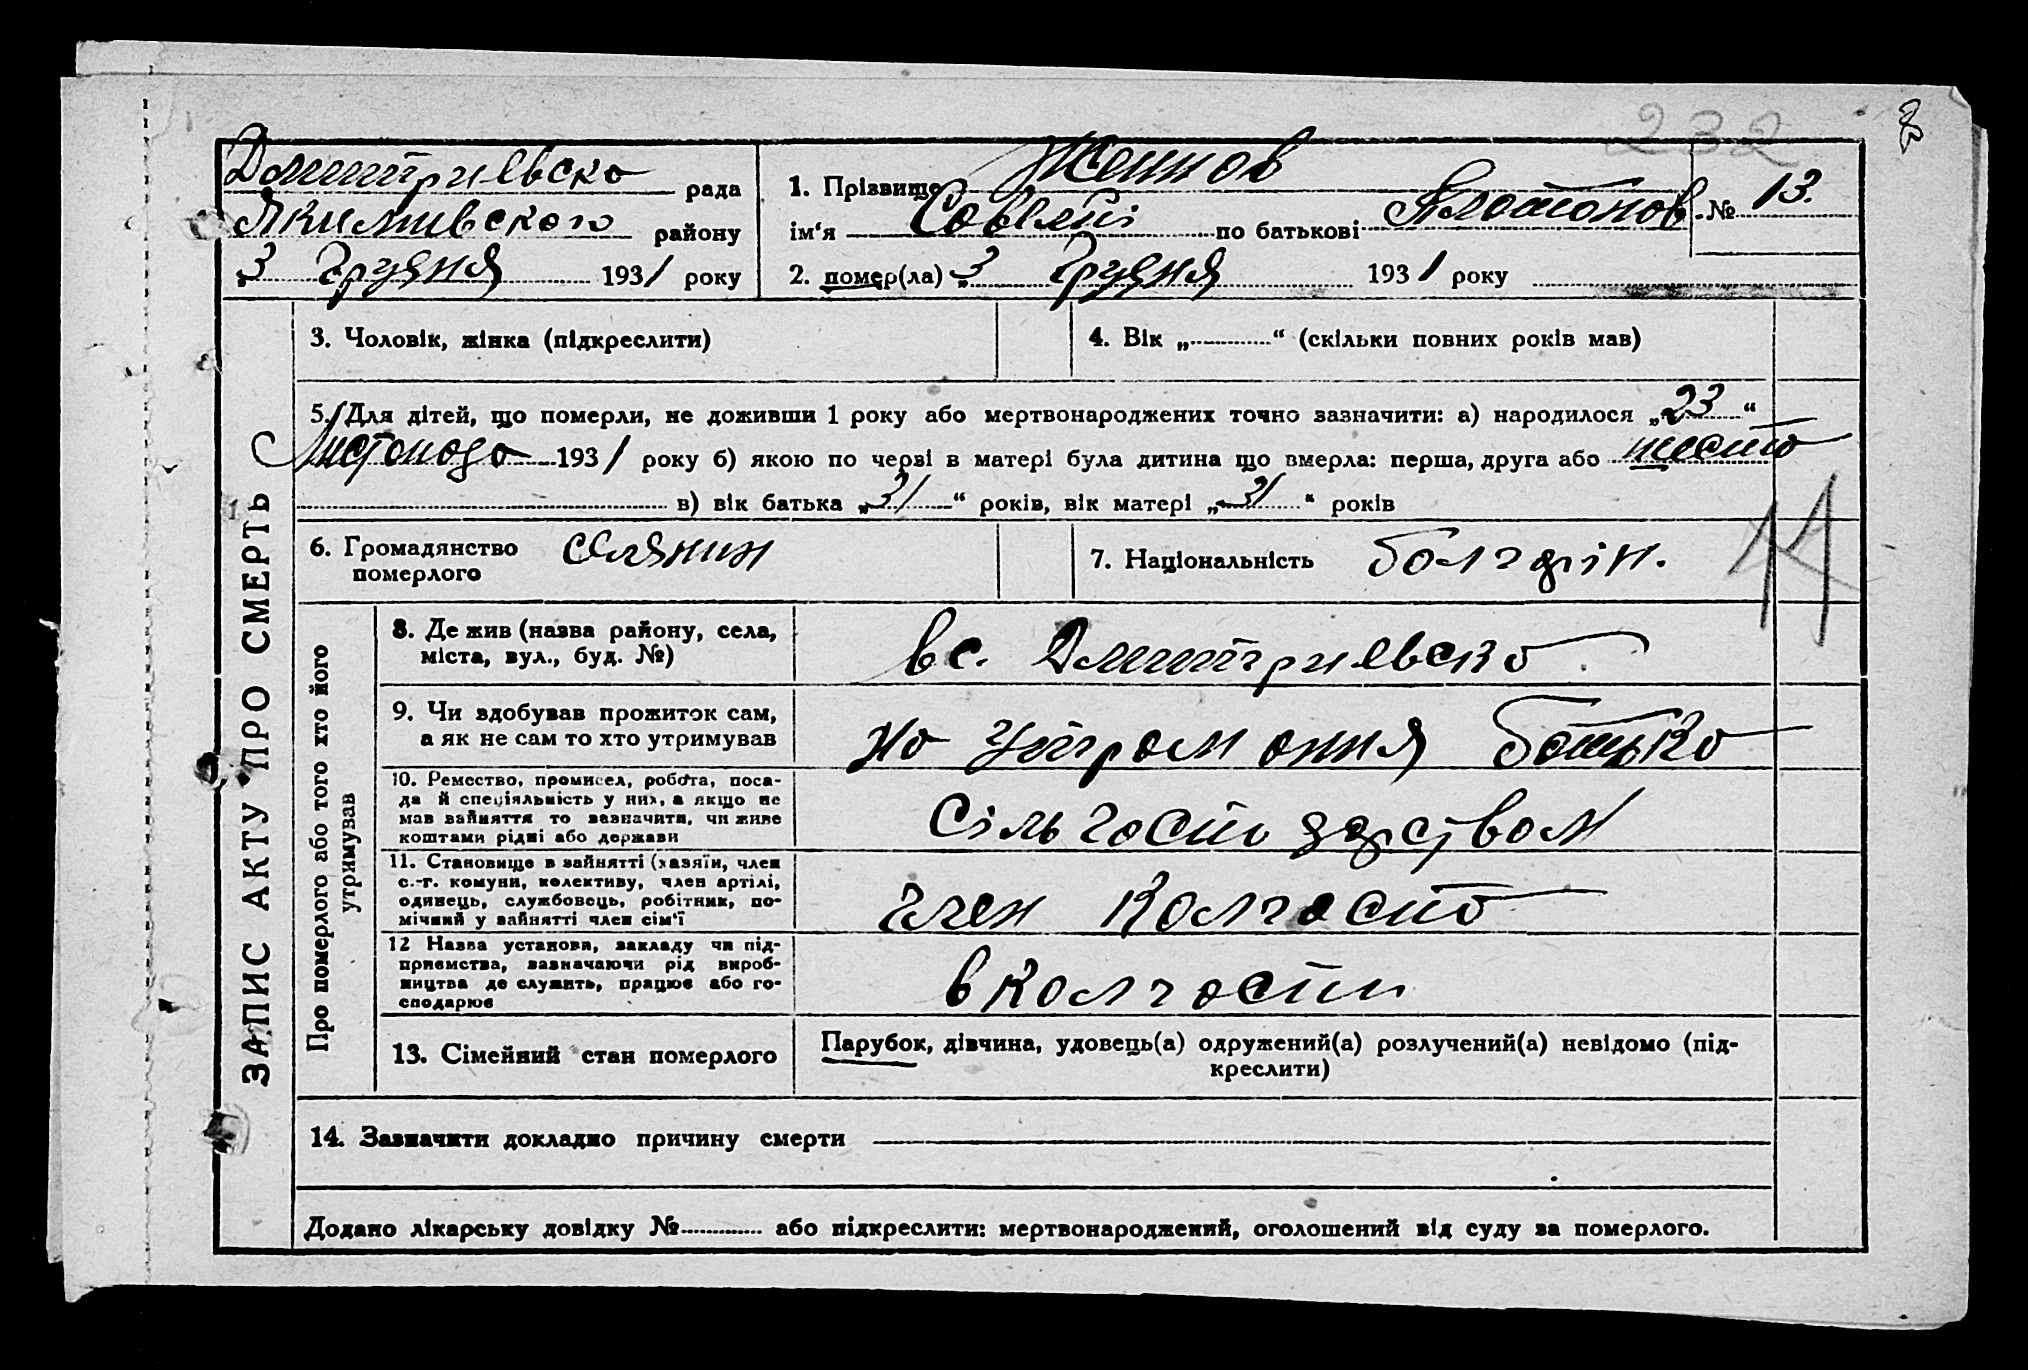 232
Дмитриевска рада
Якимивского району
„3 Грудня 1931 року
1. Прізвище Женнов
ім‘я Савелій по батькові Платонов
№ 13.
2. помер(ла) „3 Грудня 1931 року
ЗАПИС АКТУ ПРО СМЕРТЬ
3. Чоловік, жінка (підкреслити)
4. Вік „ “ (скільки повних років мав)
5. Для дітей, що померли, не доживши 1 року або мертвонароджених точно зазначити: а) народилося „23“
Листопада 1931 року б) якою по черві в матері була дитина що вмерла: перша, друга або шеста
в) вік батька „31“ років, вік матері „31“ років
6. Громадянство
померлого
селянин
7. Національність болгарін.
44
Про померлого або того хто його
утримував
8. Де жив (назва району, села,
міста, вул., буд. №)
в с. Дмитриевска
9. Чи здобував прожиток сам,
а як не сам то хто утримував
на утримання батька
10. Ремество, промисел, робота, поса-
да й спеціяльність у них, а якщо не
мав зайняття то зазначити, чи живе
коштами рідні або держави
Сільгосподарством
11. Становище в зайнятті (хазяїн, член
с.-г. комуни, колективу, член артілі,
одинець, службовець, робітник, по-
мічний у зайнятті член сім‘ї
член колгоспа
12 Назва установи, закладу чи під-
приємства, зазначаючи рід вироб-
ництва де служить, працює або го-
сподарює
в колгоспи
13. Сімейний стан померлого
Парубок, дівчина, удовець(а) одружений(а) розлучений(а) невідомо (під-
креслити)
14. Зазначити докладно причину смерти
Додано лікарську довідку № або підкреслити: мертвонароджений, оголошений від суду за померлого.